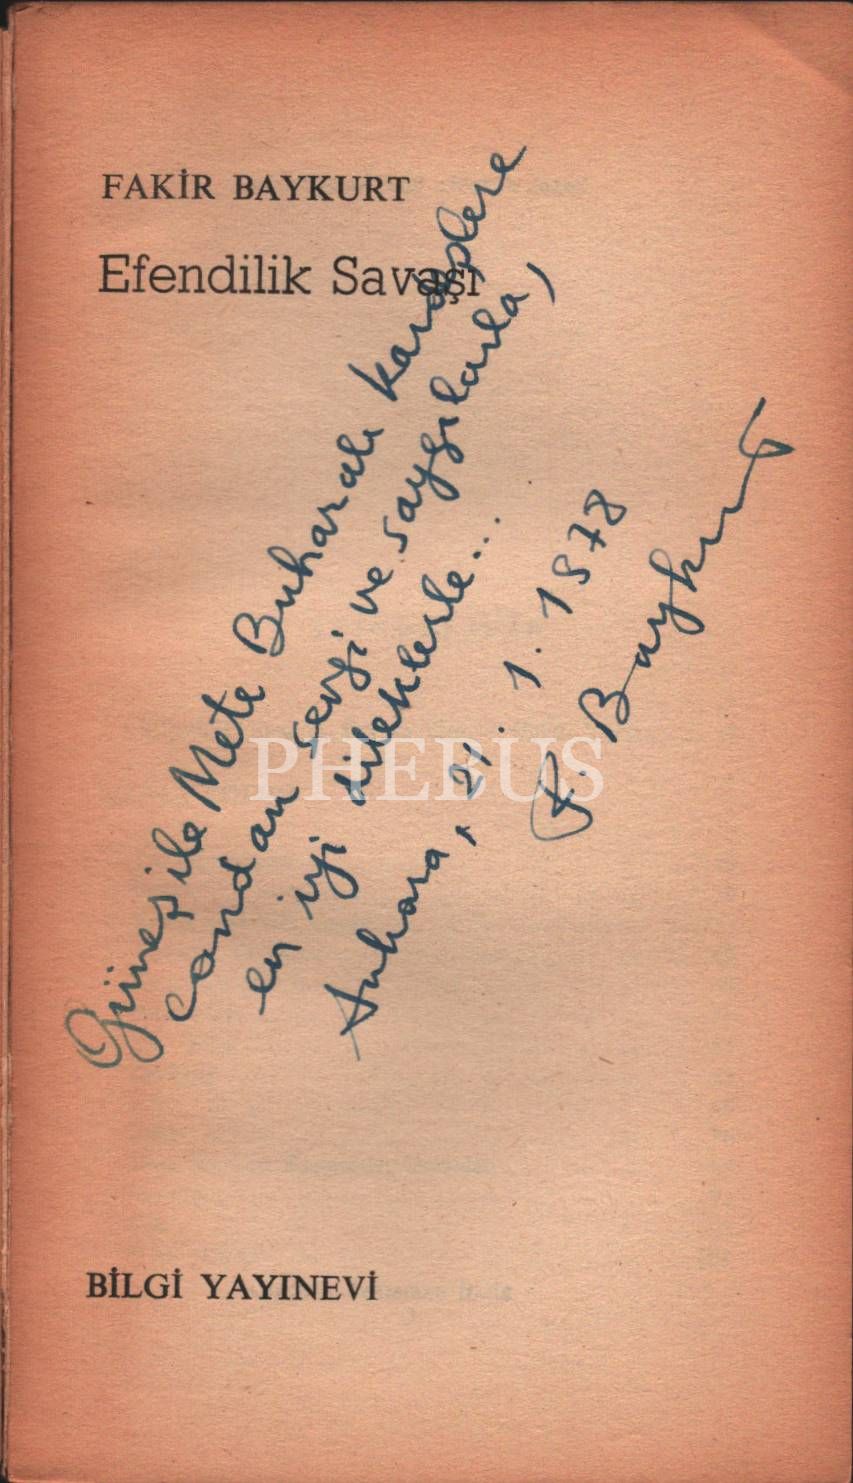 FAKİR BAYKURT
Efendilik Savaşı
Güneş ile Mete Buharalı kardeşlere
candan sevgi ve saygılarla,
en iyi dileklerle...
Ankara, 21.1.1978
F. Baykurt
PHEBUS
BİLGİ YAYINEVİ